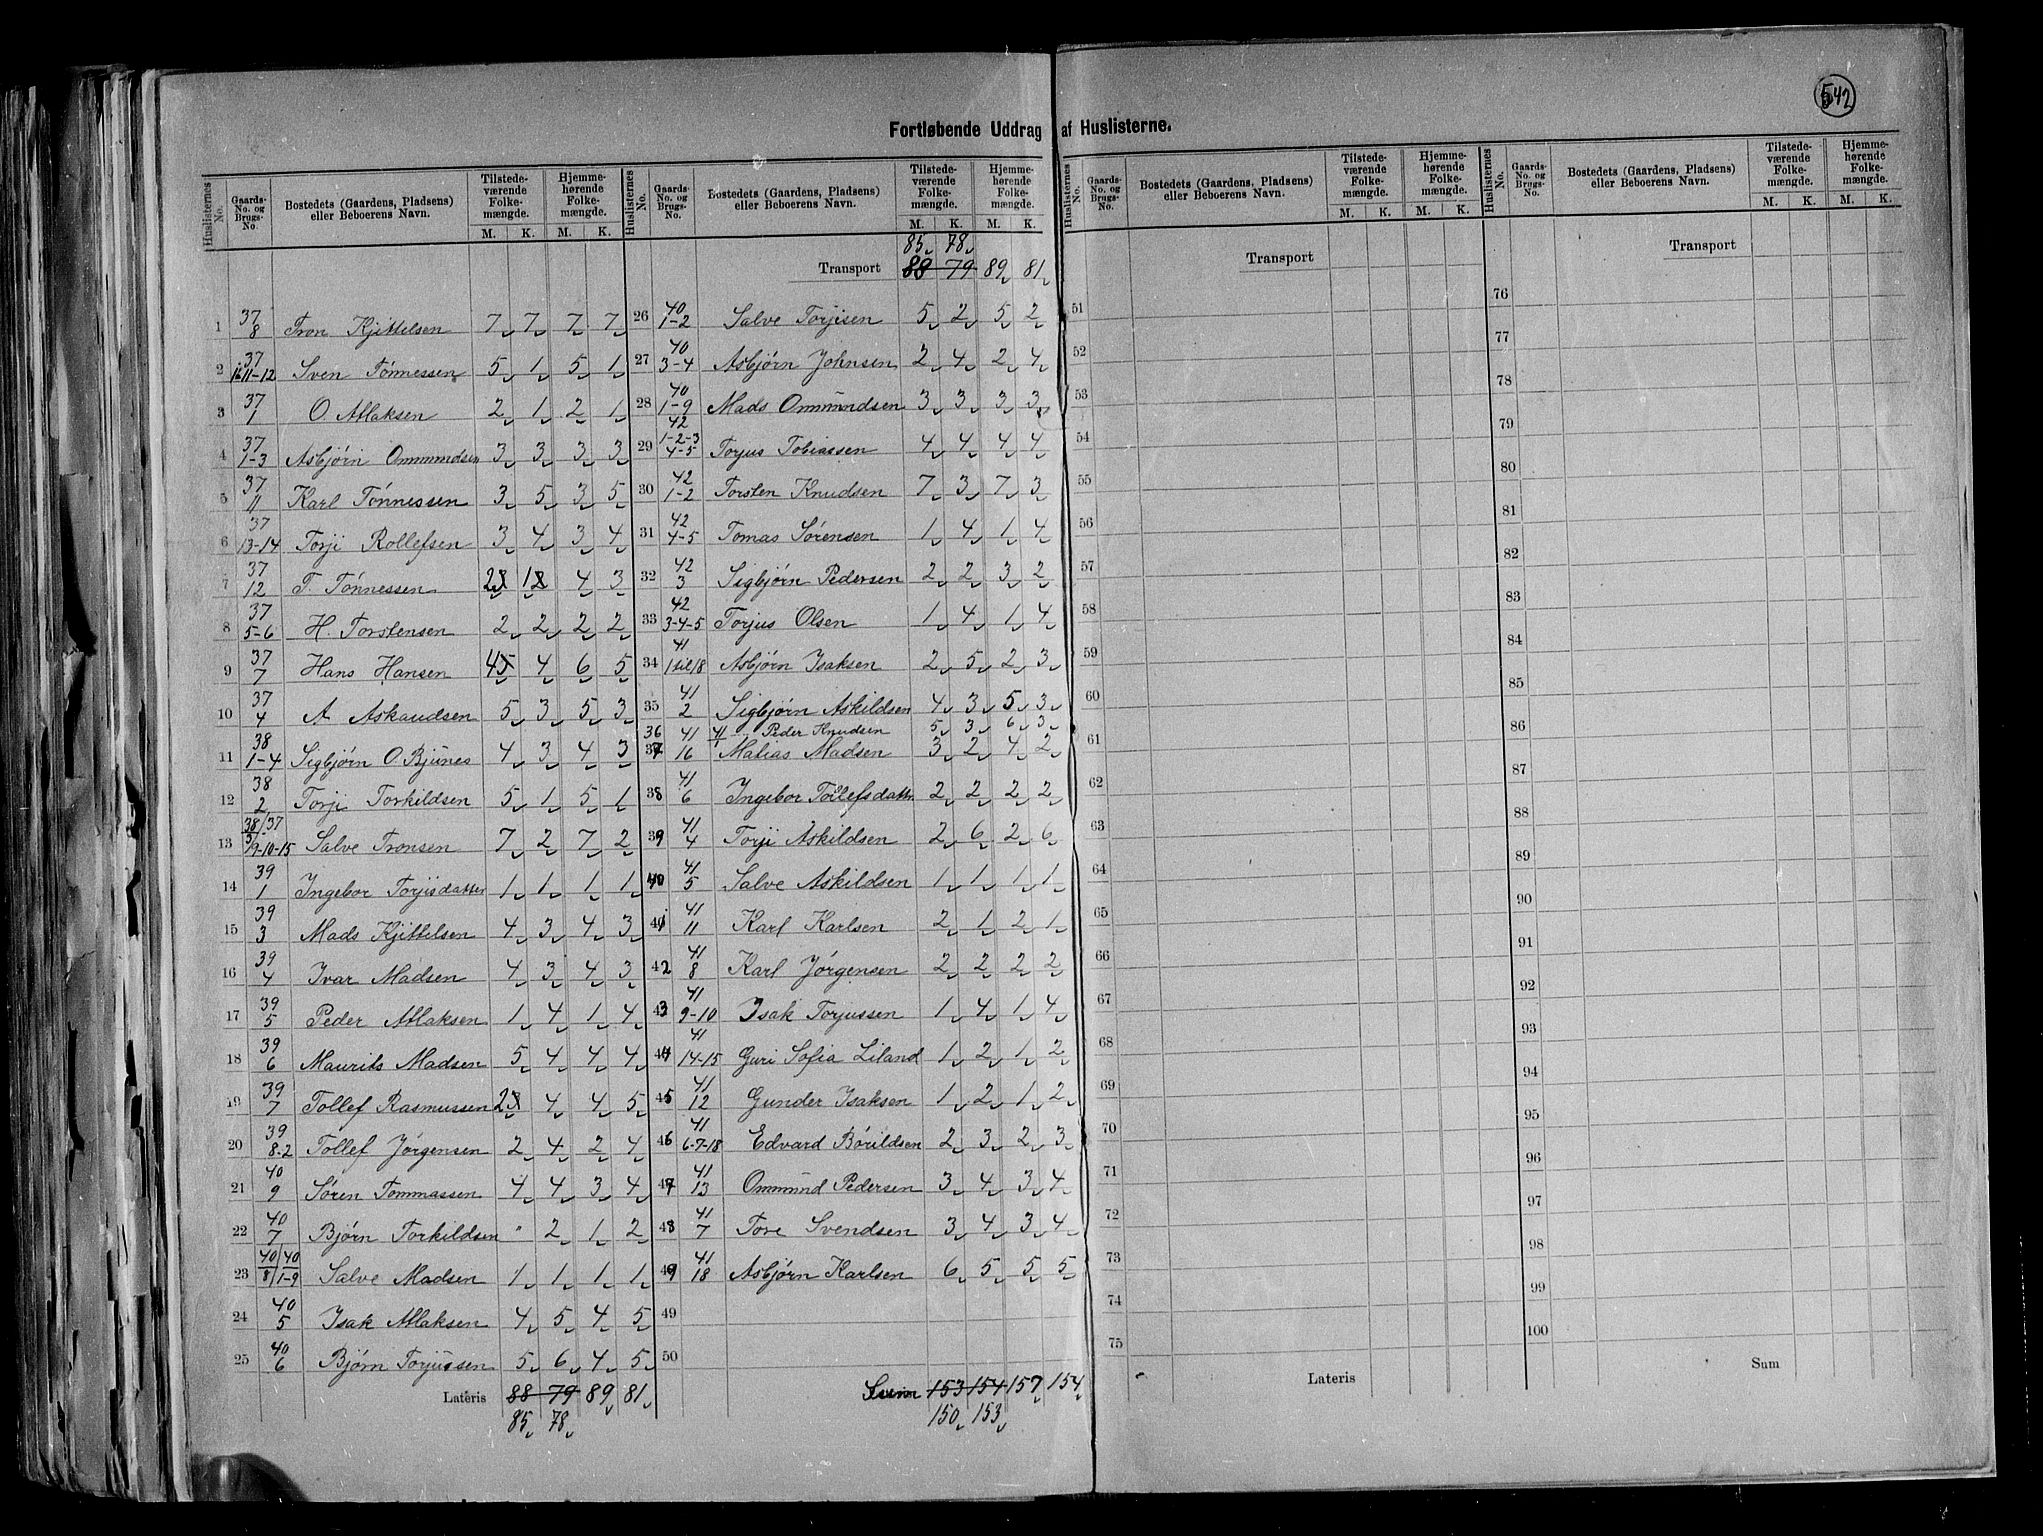 542
Fortløbende Uddrag af Huslisterne.
Huslisternes No. | Gaards-No. og Brugs-No. | Bostedets (Gaardens, Pladsens) eller Beboerens Navn. | Tilstedeværende Folkemængde. M. K. | Hjemmehørende Folkemængde. M. K.
1 37/8 Tron Kjittelsen 7 7 7 7
2 37/11-12 Sven Tønnessen 5 1 5 1
3 37/1 O. Atlaksen 2 1 2 1
4 37/1-3 Asbjørn Ommundsen 3 3 3 3
5 37/11 Karl Tønnessen 3 5 3 5
6 37/13-14 Torji Rollefsen 3 4 3 4
7 37/12 T. Tønnessen 2 1 4 3
8 37/5-6 H. Torstensen 2 2 2 2
9 37/7 Hans Hansen 4 4 6 5
10 37/4 A Askaudsen 5 3 5 3
11 38/1-4 Sigbjørn O. Bjünes 4 3 4 3
12 38/2 Torji Torkildsen 5 1 5 1
13 38/3 37/9-10-15 Salve Tronsen 7 2 7 2
14 39/1 Ingebor Torjisdatter 1 1 1 1
15 39/3 Mads Kjittelsen 4 3 4 3
16 39/4 Ivar Madsen 4 3 4 3
17 39/5 Peder Atlaksen 1 4 1 4
18 39/6 Maurits Madsen 5 4 4 4
19 39/7 Tollef Rasmussen 2 4 4 5
20 39/8-2 Tollef Jørgensen 2 4 2 4
21 40/9 Søren Tommassen 4 4 3 4
22 40/7 Bjørn Torkildsen " 2 1 2
23 40/8 40/1-9 Salve Madsen 1 1 1 1
24 40/5 Isak Atlaksen 4 5 4 5
25 40/6 Bjørn Torjussen 5 6 4 5
Lateris 88 79 89 81
85 78
Huslisternes No. | Gaards-No. og Brugs-No. | Bostedets (Gaardens, Pladsens) eller Beboerens Navn. | Tilstedeværende Folkemængde. M. K. | Hjemmehørende Folkemængde. M. K.
85 78
Transport 88 79 89 81
26 40/1-2 Salve Torjisen 5 2 5 2
27 40/3-4 Asbjørn Johnsen 2 4 2 4
28 40/1-9 Mads Ommundsen 3 3 3 3
29 42/1-2-3 4-5 Torjus Tobiassen 4 4 4 4
30 42/1-2 Torsten Knudsen 7 3 7 3
31 42/4-5 Tomas Sørensen 1 4 1 4
32 42/3 Sigbjørn Pedersen 2 2 3 2
33 42/3-4-5 Torjus Olsen 1 4 1 4
34 41/1 til 18 Asbjørn Isaksen 2 5 2 3
35 41/2 Sigbjørn Askildsen 4 3 5 3
36 41 Peder Knudsen 5 3 6 3
37 41/16 Matias Madsen 3 2 4 2
38 41/6 Ingebor Tollefsdatter 2 2 2 2
39 41/4 Torji Askildsen 2 6 2 6
40 41/5 Salve Askildsen 1 1 1 1
41 41/11 Karl Karlsen 2 1 2 1
42 41/8 Karl Jørgensen 2 2 2 2
43 41/9-10 Isak Torjussen 1 4 1 4
44 41/14-15 Guri Sofia Liland 1 2 1 2
45 41/12 Gunder Isaksen 1 2 1 2
46 41/6-7-18 Edvard Bórildsen 2 3 2 3
47 41/13 Ommund Pedersen 3 4 3 4
48 41/7 Tore Svendsen 3 4 3 4
49 41/18 Asbjørn Karlsen 6 5 5 5
49
50
Sum 153 154 157 154
150 153
Huslisternes No. | Gaards-No. og Brugs-No. | Bostedets (Gaardens, Pladsens) eller Beboerens Navn. | Tilstedeværende Folkemængde. M. K. | Hjemmehørende Folkemængde. M. K.
Transport
51
52
53
54
55
56
57
58
59
60
61
62
63
64
65
66
67
68
69
70
71
72
73
74
75
Lateris
Huslisternes No. | Gaards-No. og Brugs-No. | Bostedets (Gaardens, Pladsens) eller Beboerens Navn. | Tilstedeværende Folkemængde. M. K. | Hjemmehørende Folkemængde. M. K.
Transport
76
77
78
79
80
81
82
83
84
85
86
87
88
89
90
91
92
93
94
95
96
97
98
99
100
Sum